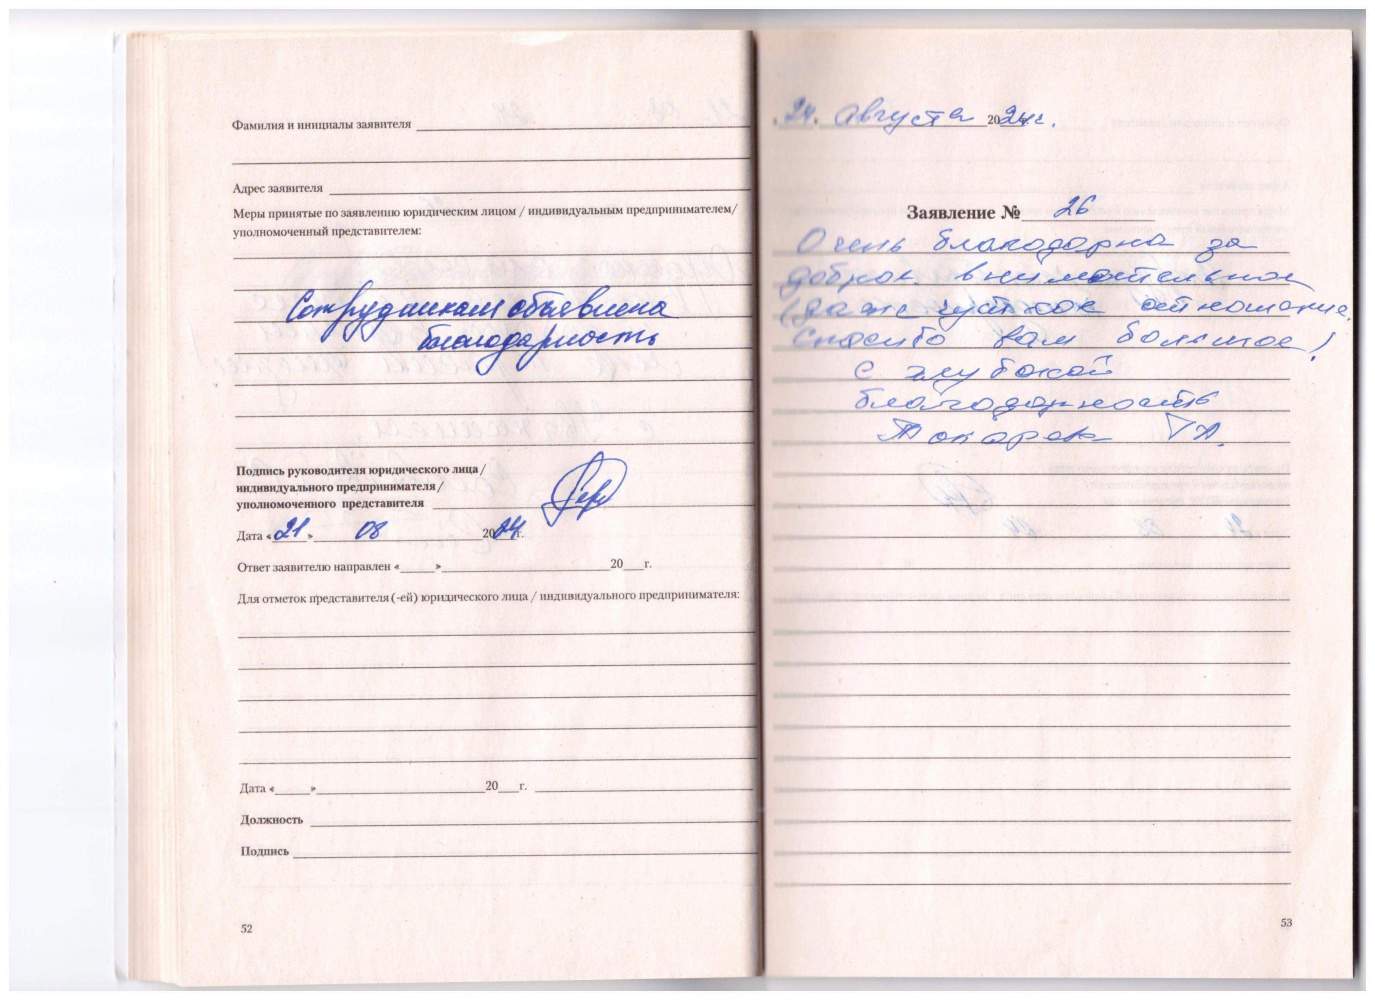 Фамилия и инициалы заявителя
Адрес заявителя
Меры принятые по заявлению юридическим лицом / индивидуальным предпринимателем/
уполномоченный представителем:
Сотрудникам объявлена
благодарность
Подпись руководителя юридического лица /
индивидуального предпринимателя /
уполномоченного представителя
Дата «21» 08 2024г.
Ответ заявителю направлен «______»____________________________20___г.
Для отметок представителя (-ей) юридического лица / индивидуального предпринимателя:
Дата «______»____________________________20___г.
Должность
Подпись
52
24. августа 2024г.
Заявление № 26
Очень благодарна за
доброе, внимательное
(даже чуткое отношение.
Спасибо вам большое)!
С глубокой
благодарностью
53